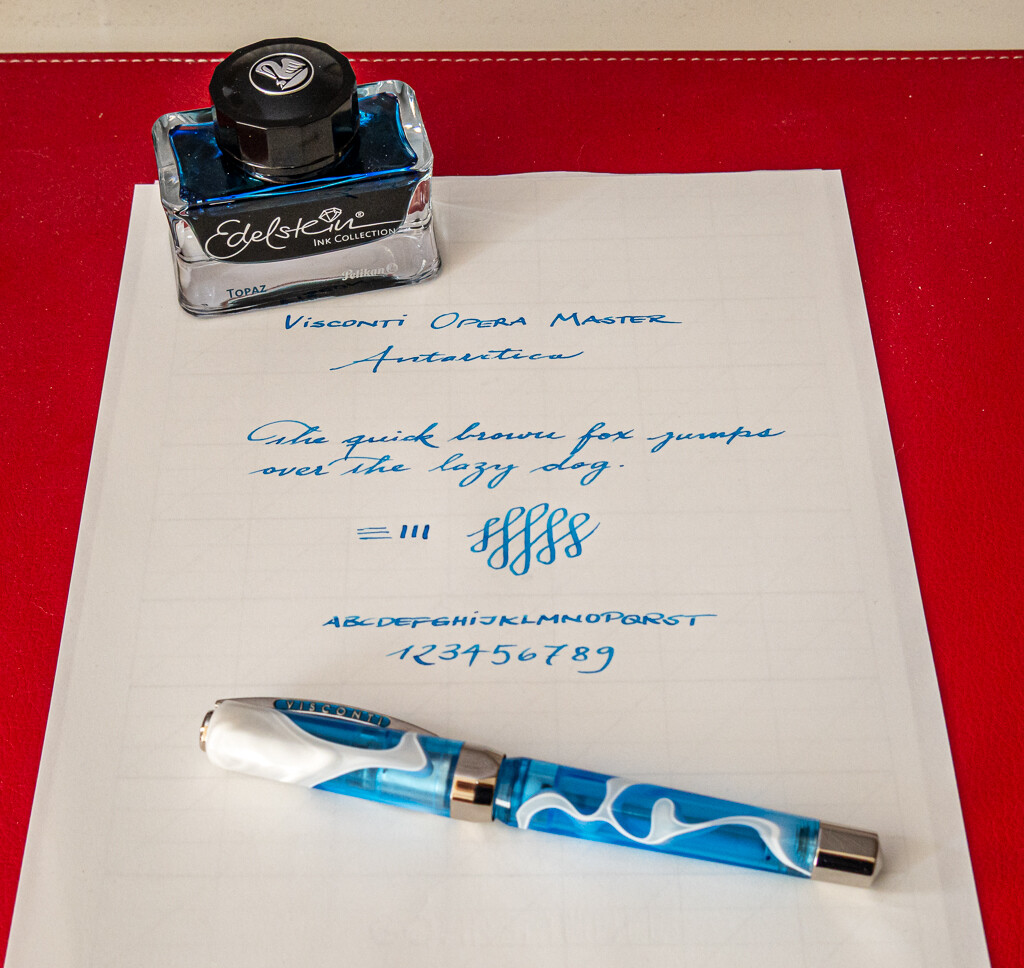 Edelstein®
INK COLLECTION
Pelikan
TOPAZ
VISCONTI OPERA MASTER
Antarctica
The quick brown fox jumps
over the lazy dog.
ABCDEFGHIJKLMNOPQRST
123456789
VISCONTI